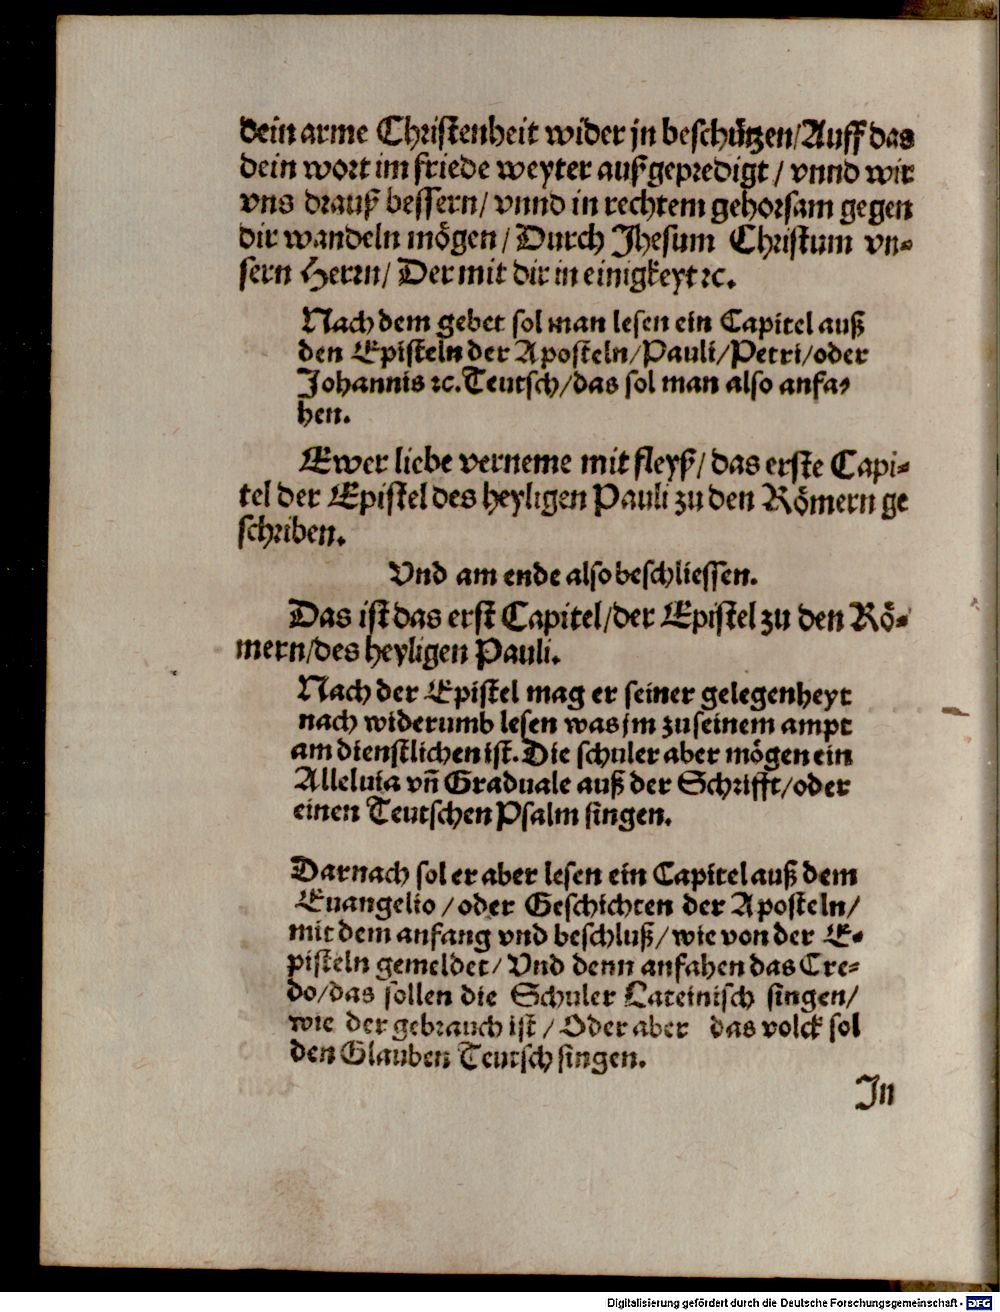 dein arme Christenheit wider jn beschützen/Auff das
dein wort im friede weyter außgepredigt / vnnd wir
vns drauß bessern/ vnnd in rechtem gehorsam gegen
dir wandeln mögen / Durch Jhesum Christum vn-
sern Herrn/ Der mit dir in einigkeyt ꝛc.
Nach dem gebet sol man lesen ein Capitel auß
den Episteln der Aposteln/Pauli/Petri/oder
Johannis ꝛc. Teutsch/das sol man also anfa-
hen.
Ewer liebe verneme mit fleyß/ das erste Capi-
tel der Epistel des heyligen Pauli zu den Römern ge
schriben.
Vnd am ende also beschliessen.
Das ist das erst Capitel/der Epistel zu den Rö-
mern/des heyligen Pauli.
Nach der Epistel mag er seiner gelegenheyt
nach widerumb lesen was jm zu seinem ampt
am dienstlichen ist. Die schuler aber mögen ein
Alleluia vñ Graduale auß der Schrifft/oder
einen Teutschen Psalm singen.
Darnach sol er aber lesen ein Capitel auß dem
Euangelio /oder Geschichten der Aposteln/
mit dem anfang vnd beschluß/wie von der E-
pisteln gemeldet/ Vnd denn anfahen das Cre-
do/das sollen die Schuler Lateinisch singen/
wie der gebrauch ist / Oder aber das volck sol
den Glauben Teutsch singen.
Jn
Digitalisierung gefördert durch die Deutsche Forschungsgemeinschaft - DFG